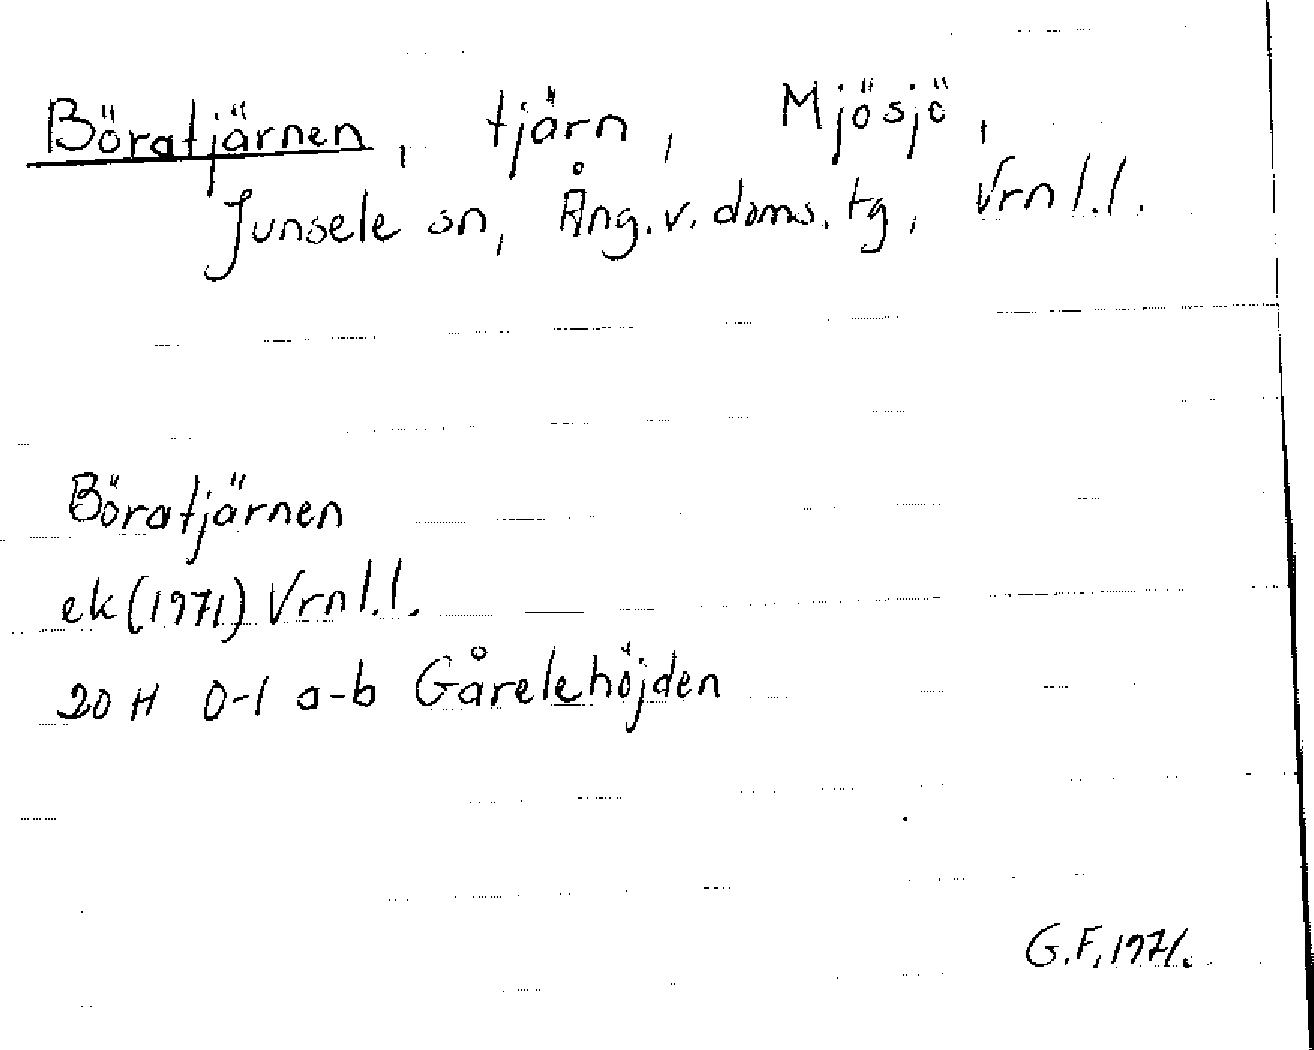 Böratjärnen, tjärn, Mjösjö,
Junsele sn, Ång. v. doms. tg, Vrnl.l.
Böratjärnen
ek (1971) Vrnl.l.
20 H 0-1 a-b Gårelehöjden
G.F, 1971.